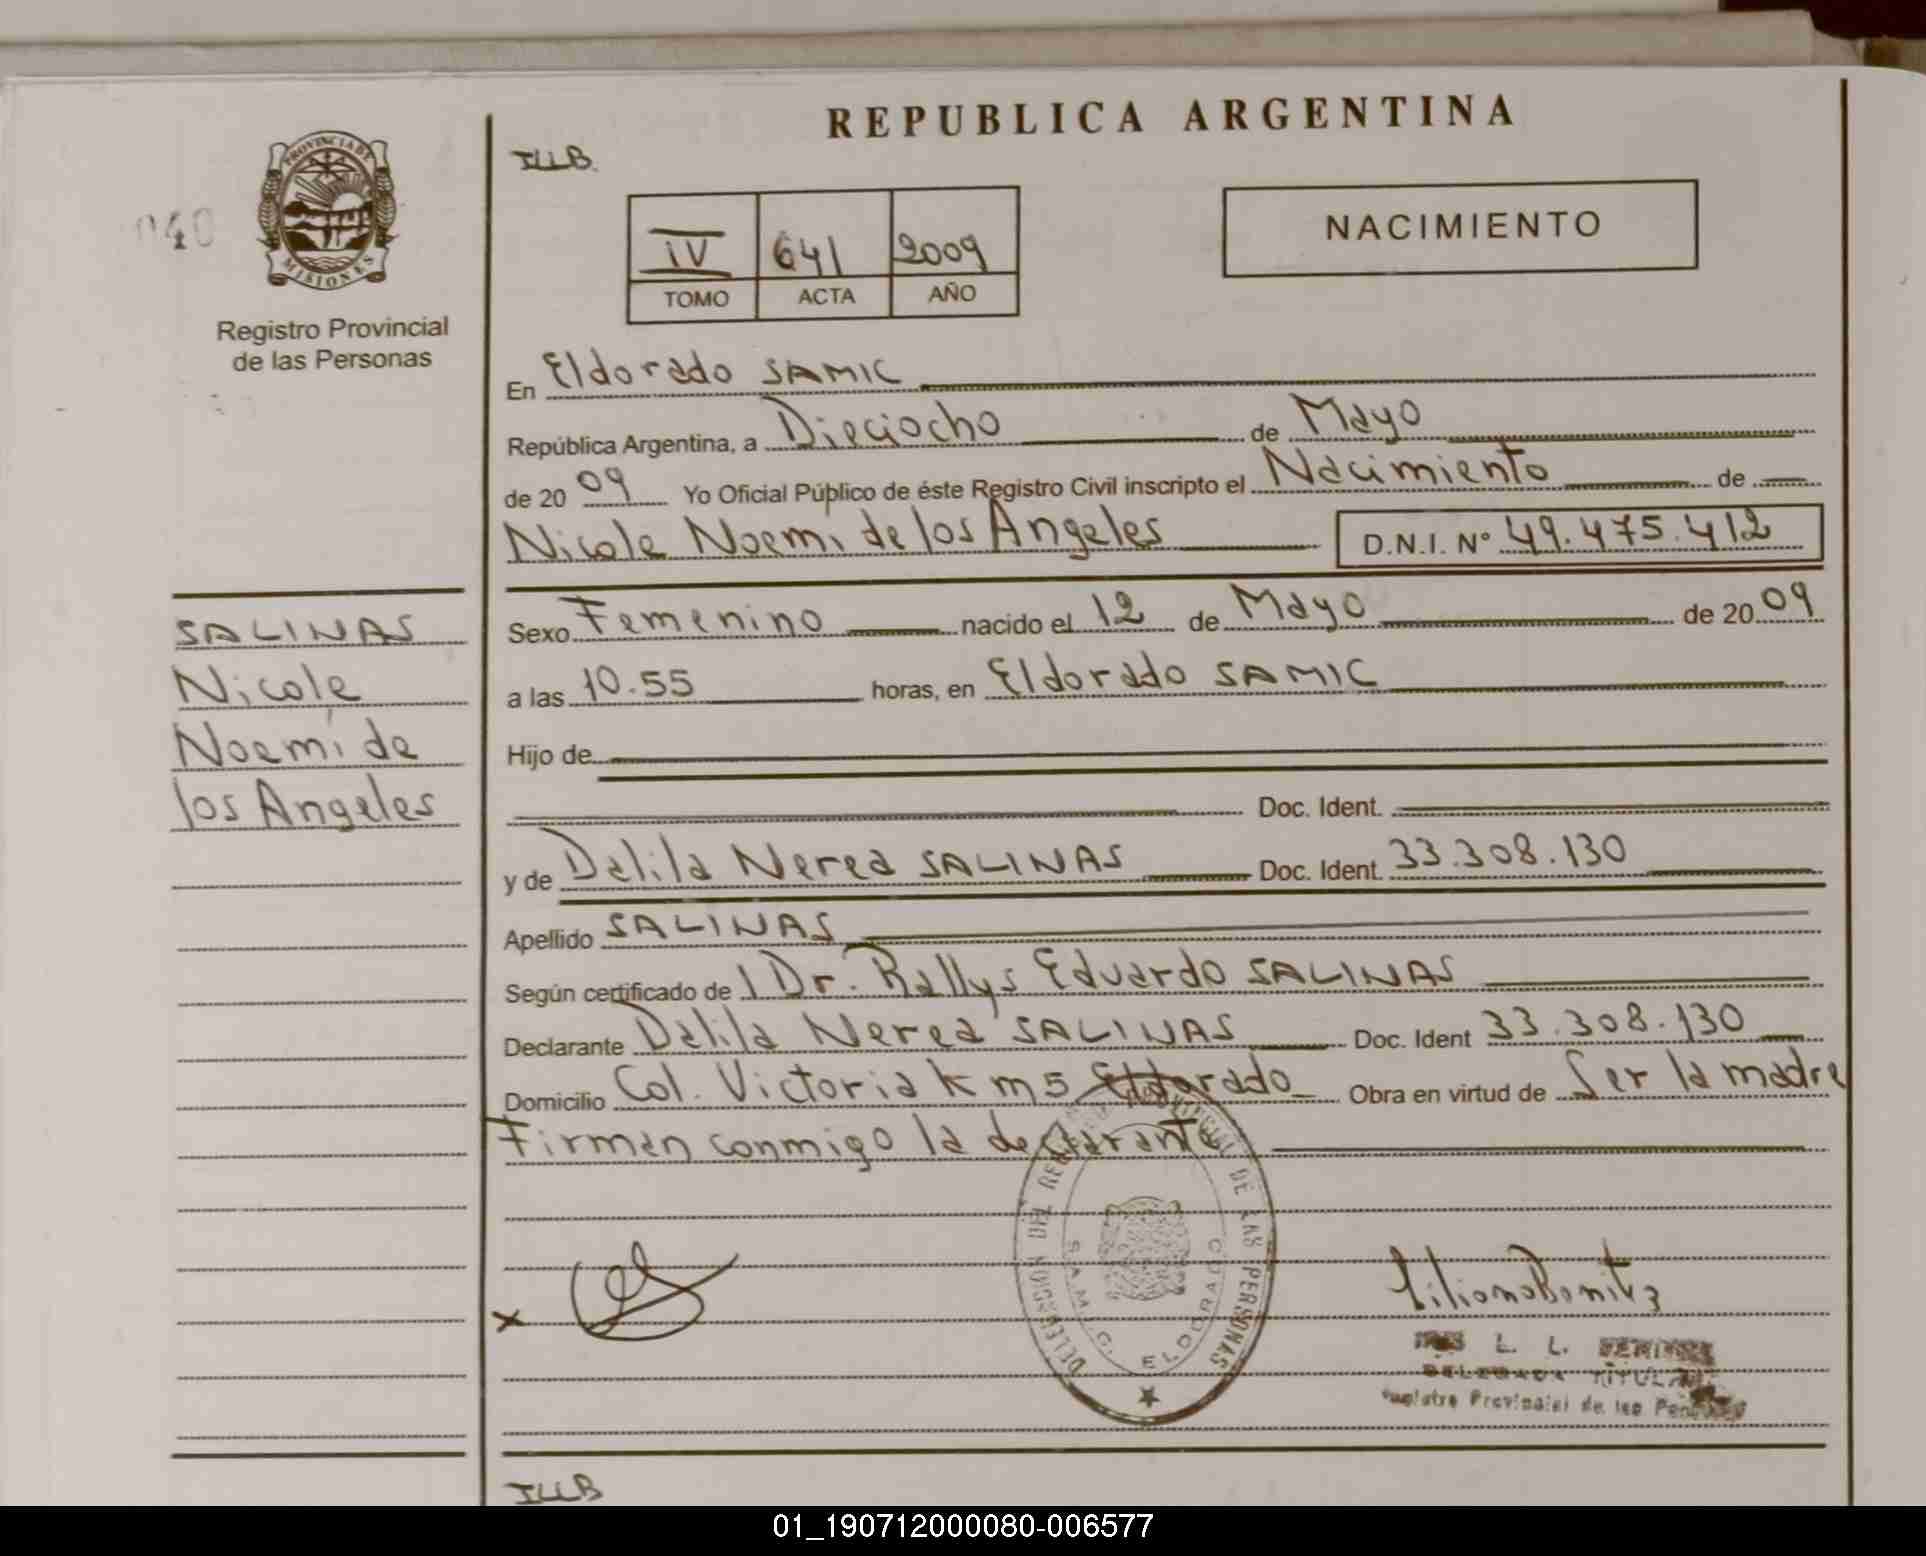 REPUBLICA ARGENTINA
ILLB.
040
PROVINCIA DE
MISIONES
Registro Provincial
de las Personas
IV 641 2009
TOMO ACTA AÑO
NACIMIENTO
En Eldorado SAMIC
República Argentina, a Dieciocho de Mayo
de 20 09 Yo Oficial Público de éste Registro Civil inscripto el Nacimiento de
Nicole Noemí de los Angeles D.N.I. Nº 49.475.412
SALINAS
Nicole
Noemí de
los Angeles
Sexo Femenino nacido el 12 de Mayo de 20 09
a las 10.55 horas, en Eldorado SAMIC
Hijo de
Doc. Ident.
y de Dalila Nerea SALINAS Doc. Ident. 33.308.130
Apellido SALINAS
Según certificado de Dr. Rallys Eduardo SALINAS
Declarante Dalila Nerea SALINAS Doc. Ident 33.308.130
Domicilio Col. Victoria Km 5 Eldorado Obra en virtud de Ser la madre
Firman conmigo la declarante
DELEGACION DEL REGISTRO PROVINCIAL DE LAS PERSONAS
S.A.M.I.C. ELDORADO
x
L. L.
DELEGADA TITULAR
Registro Provincial de las Personas
ILLB
01_190712000080-006577